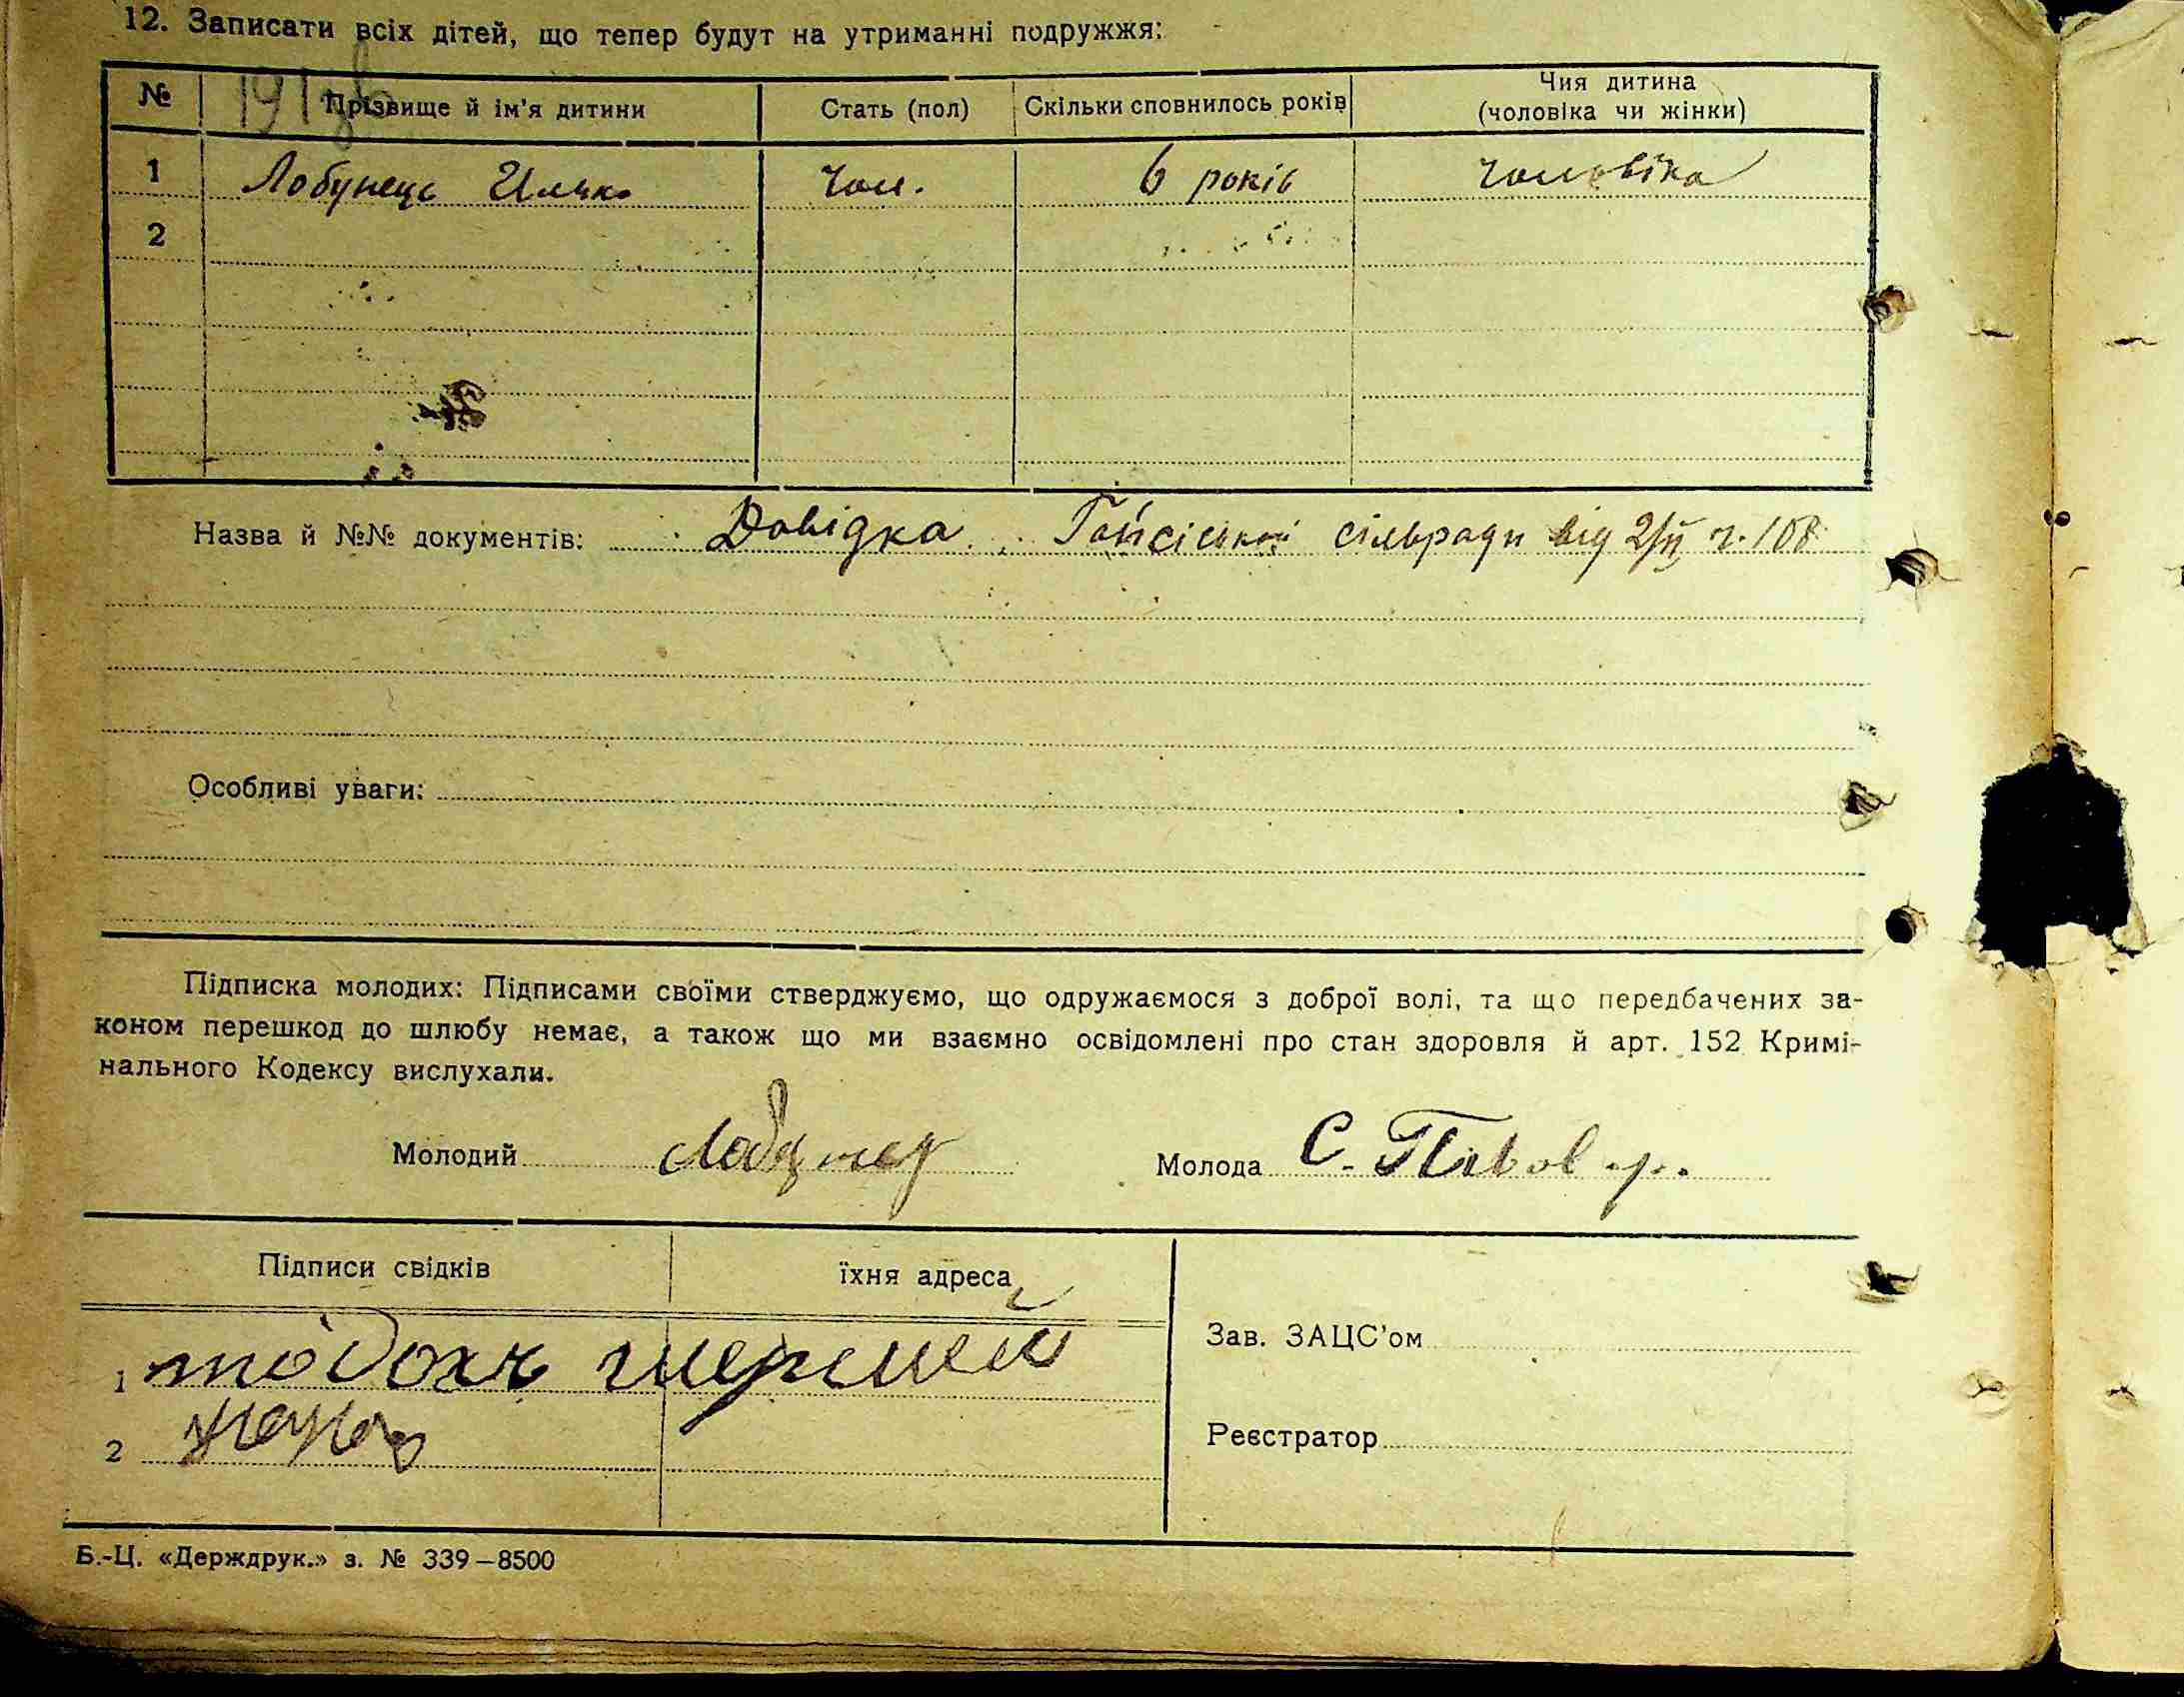 12. Записати всіх дітей, що тепер будут на утриманні подружжя:
№ Прізвище й ім'я дитини Стать (пол) Скільки сповнилось років Чия дитина
(чоловіка чи жінки)
1 Лобунець Илько чол. 6 років чоловіка
2
Назва й №№ документів: Довідка сільради від 2/ІІ ч. 108
Особливі уваги:
Підписка молодих: Підписами своїми стверджуємо, що одружаємося з доброї волі, та що передбачених за-
коном перешкод до шлюбу немає, а також що ми взаємно освідомлені про стан здоровля й арт. 152 Кримі-
нального Кодексу вислухали.
Молодий Молода С.
Підписи свідків їхня адреса
Зав. ЗАЦС'ом
1
Реєстратор
2
Б.-Ц. «Держдрук.» з. № 339–8500